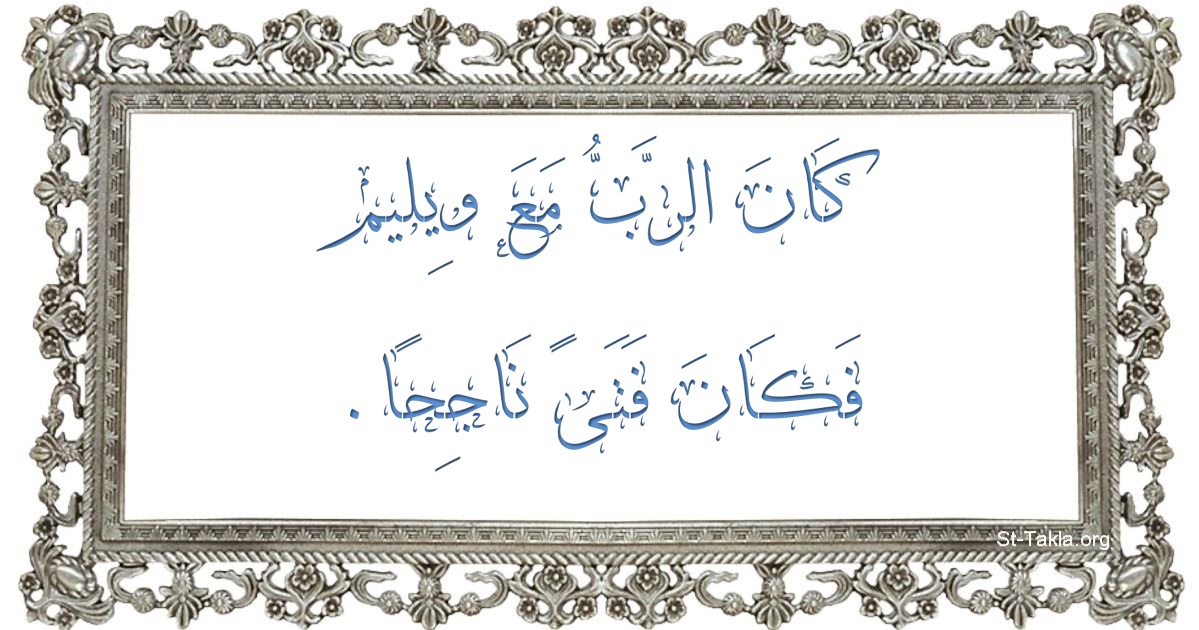 كَانَ الرَّبُّ مَعَ ويِليم
فَكَانَ فَتَىً نَاجِحًا .
St-Takla.org